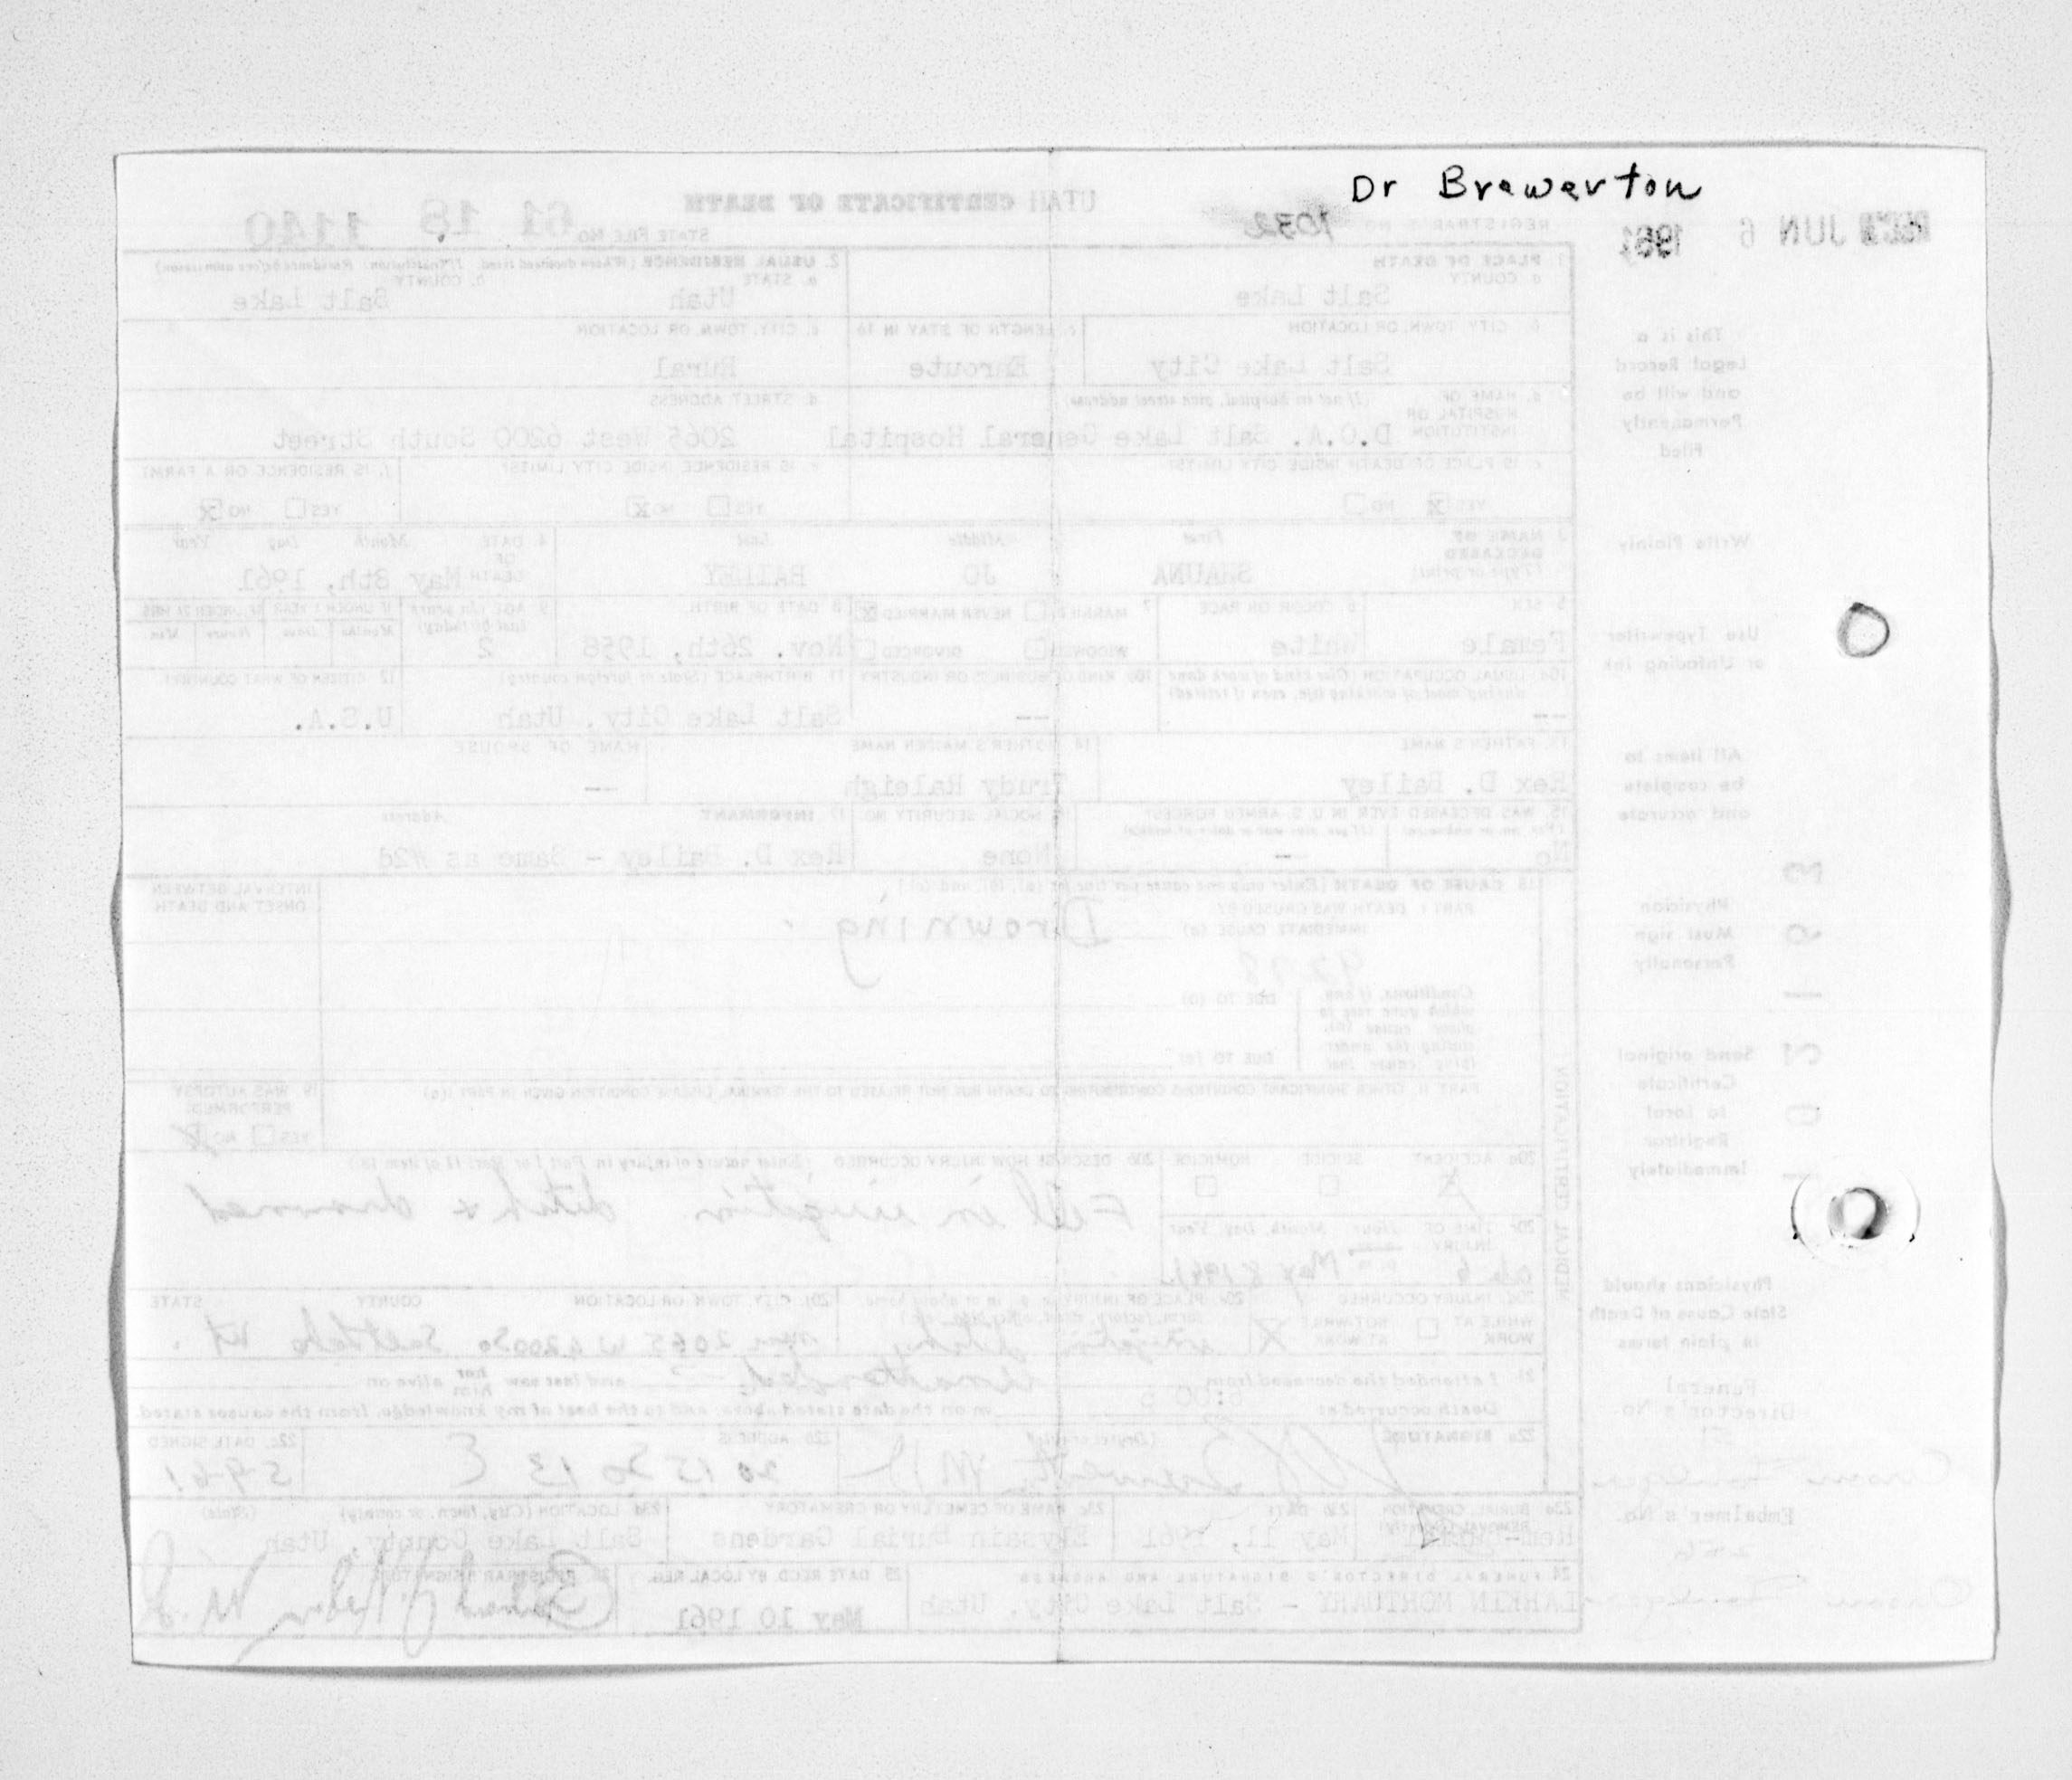 Dr Brewerton
REC'D JUN 6 1961
UTAH CERTIFICATE OF DEATH
REGISTRAR'S NO. 1032
STATE FILE NO. 61 18 1140
This is a
Legal Record
and will be
Permanently
Filed
Write Plainly
Use Typewriter
or Unfading Ink
All items to
be complete
and accurate
Physician
Must sign
Personally
Send original
Certificate
to Local
Registrar
Immediately
Physicians should
State Cause of Death
in plain terms
Funeral
Director's No.
Embalmer's No.
1. PLACE OF DEATH
a. COUNTY
Salt Lake
2. USUAL RESIDENCE (Where deceased lived. If institution: Residence before admission)
a. STATE Utah
b. COUNTY Salt Lake
b. CITY, TOWN, OR LOCATION
Salt Lake City
c. LENGTH OF STAY IN 1b
Enroute
c. CITY, TOWN, OR LOCATION
Rural
d. NAME OF HOSPITAL OR INSTITUTION (If not in hospital, give street address)
D.O.A. Salt Lake General Hospital
d. STREET ADDRESS
2065 West 6200 South Street
e. IS PLACE OF DEATH INSIDE CITY LIMITS?
YES X NO
e. IS RESIDENCE INSIDE CITY LIMITS?
YES NO X
f. IS RESIDENCE ON A FARM?
YES NO X
3. NAME OF DECEASED (Type or print)
First Middle Last
SHAUNA JO BAILEY
4. DATE OF DEATH Month Day Year
May 8th, 1961
5. SEX
Female
6. COLOR OR RACE
White
7. MARRIED NEVER MARRIED X
WIDOWED DIVORCED
8. DATE OF BIRTH
Nov. 26th, 1958
9. AGE (In years last birthday)
2
IF UNDER 1 YEAR Months Days
IF UNDER 24 HRS. Hours Min.
10a. USUAL OCCUPATION (Give kind of work done during most of working life, even if retired)
--
10b. KIND OF BUSINESS OR INDUSTRY
--
11. BIRTHPLACE (State or foreign country)
Salt Lake City, Utah
12. CITIZEN OF WHAT COUNTRY?
U.S.A.
13. FATHER'S NAME
Rex D. Bailey
14. MOTHER'S MAIDEN NAME
Trudy Raleigh
NAME OF SPOUSE
--
15. WAS DECEASED EVER IN U.S. ARMED FORCES?
(Yes, no, or unknown) (If yes, give war or dates of service)
No --
16. SOCIAL SECURITY NO.
None
17. INFORMANT Address
Rex D. Bailey - Same as #2d
18. CAUSE OF DEATH (Enter only one cause per line for (a), (b), and (c).)
PART I. DEATH WAS CAUSED BY:
IMMEDIATE CAUSE (a) Drowning
INTERVAL BETWEEN ONSET AND DEATH
Conditions, if any, which gave rise to above cause (a), stating the underlying cause last
DUE TO (b)
DUE TO (c)
PART II. OTHER SIGNIFICANT CONDITIONS CONTRIBUTING TO DEATH BUT NOT RELATED TO THE TERMINAL DISEASE CONDITION GIVEN IN PART I(a)
19. WAS AUTOPSY PERFORMED?
YES NO X
MEDICAL CERTIFICATION
20a. ACCIDENT SUICIDE HOMICIDE
X
20b. DESCRIBE HOW INJURY OCCURRED (Enter nature of injury in Part I or Part II of item 18.)
Fell in irrigation ditch & drowned
20c. TIME OF INJURY Hour Month, Day, Year
p.m. May 8 1961
20d. INJURY OCCURRED
WHILE AT WORK NOT WHILE AT WORK X
20e. PLACE OF INJURY (e.g., in or about home, farm, factory, street, office bldg., etc.)
irrigation ditch
20f. CITY, TOWN, OR LOCATION COUNTY STATE
near 2065 W 6200 So Salt Lake Ut.
21. I attended the deceased from unattended and last saw her him alive on
Death occurred at m on the date stated above; and to the best of my knowledge, from the causes stated.
22a. SIGNATURE (Degree or title)
Brewerton M.D.
22b. ADDRESS
2015 So 13 E
22c. DATE SIGNED
5-9-61
23a. BURIAL, CREMATION, REMOVAL (Specify)
23b. DATE
May 11, 1961
23c. NAME OF CEMETERY OR CREMATORY
Elysain Burial Gardens
23d. LOCATION (City, town, or county) (State)
Salt Lake County, Utah
24. FUNERAL DIRECTOR'S SIGNATURE AND ADDRESS
LARKIN MORTUARY - Salt Lake City, Utah
25. DATE RECD. BY LOCAL REG.
May 10 1961
26. REGISTRAR'S SIGNATURE